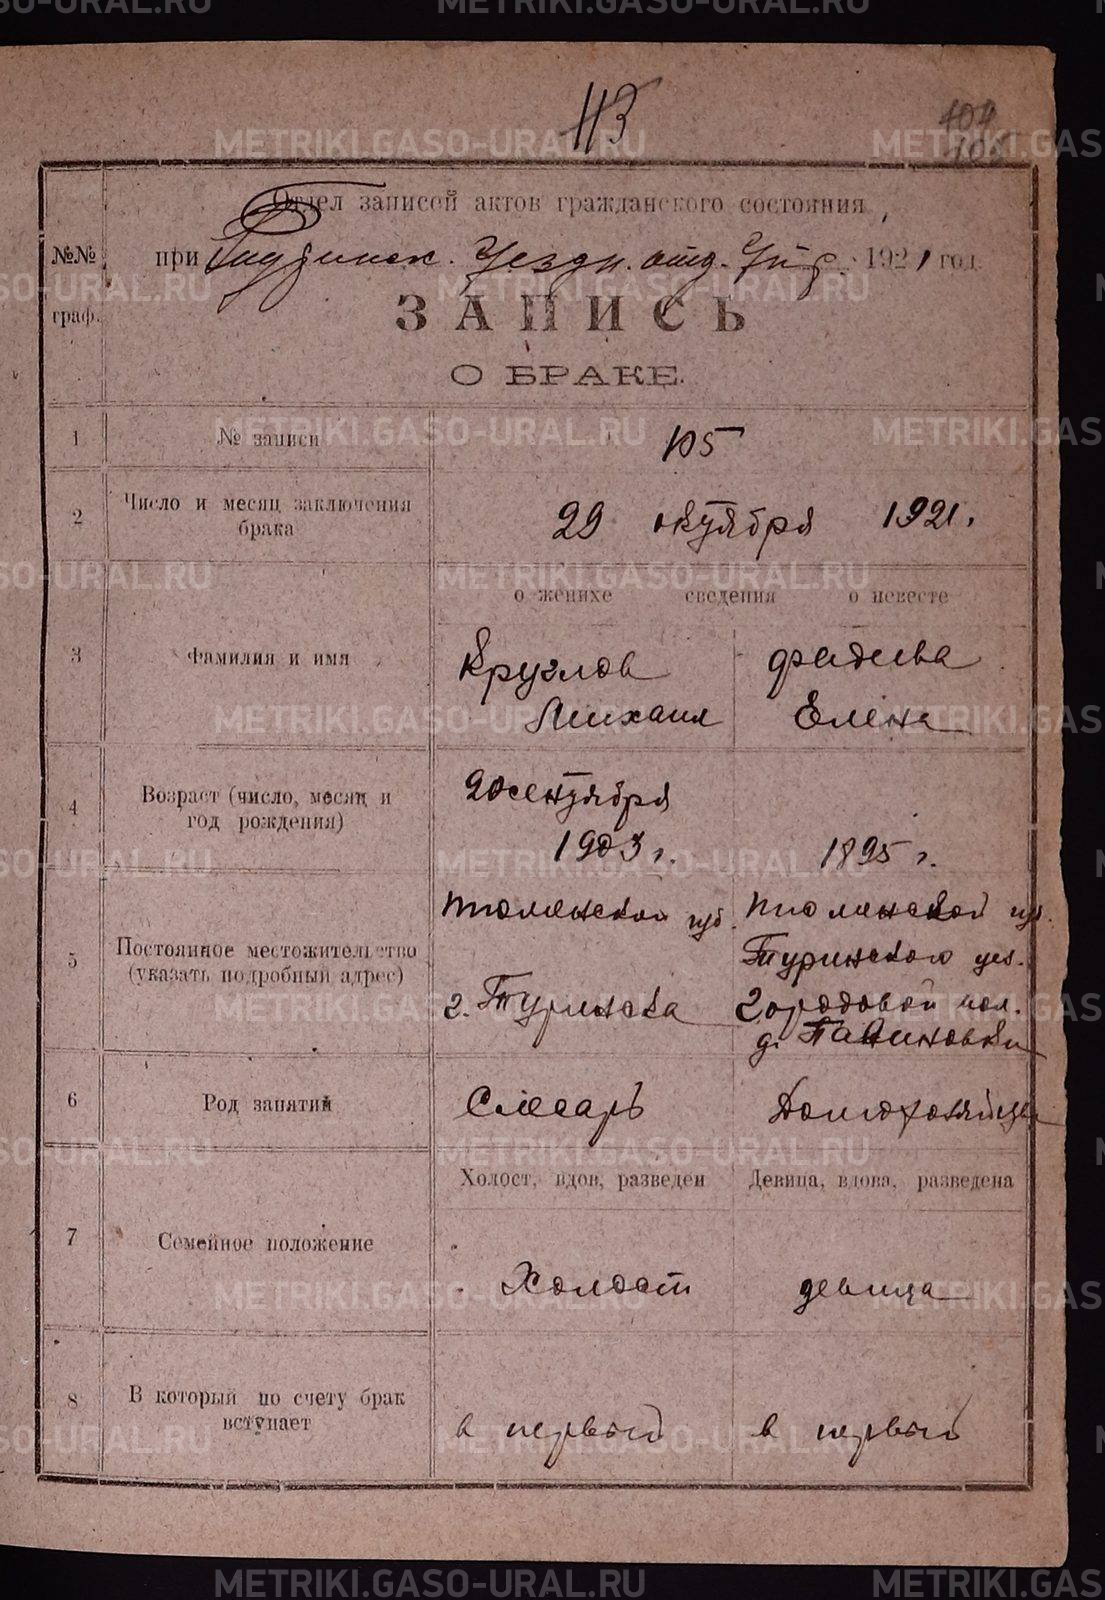 113
104
Отдел записей актов гражданского состояния
№№ граф.
при Уездн. отд. Упр. 1921 год.
ЗАПИСЬ
О БРАКЕ.
1 № записи 105
2 Число и месяц заключения брака 29 октября 1921.
о женихе сведения о невесте
3 Фамилия и имя Круглов Фадеева
Михаил Елена
4 Возраст (число, месяц и год рождения) 20 сентября
1903 г. 1895 г.
5 Постоянное местожительство (указать подробный адрес) Тюменской губ. Тюменской губ.
Туринского уез.
г. Туринска Городовой вол.
д.
6 Род занятий Слесарь Домохозяйка
Холост, вдов, разведен Девица, вдова, разведена
7 Семейное положение Холост девица
8 В который по счету брак вступает в первый в первый
METRIKI.GASO-URAL.RU